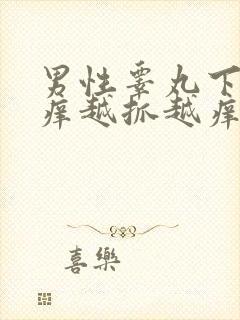 男性睾丸下
痒越抓越痒
喜樂